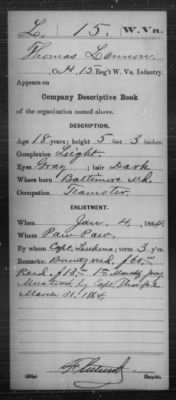 L. 15. W. Va.
Thomas Lennon
, Co. H, 15 Reg't W. Va. Infantry.
Appears on
Company Descriptive Book
of the organization named above.
DESCRIPTION.
Age 18 years; height 5 feet 3 inches.
Complexion Light.
Eyes Gray; hair Dark
Where born Baltimore Md.
Occupation Teamster.
ENLISTMENT.
When Jan. 4, 1864.
Where Paw Paw.
By whom Capt. ; term 3 y'rs.
Remarks: Bounty $60
Recd. $13. 1st Months pay
Mustered by Capt.
March 31, 1864
Copyist.